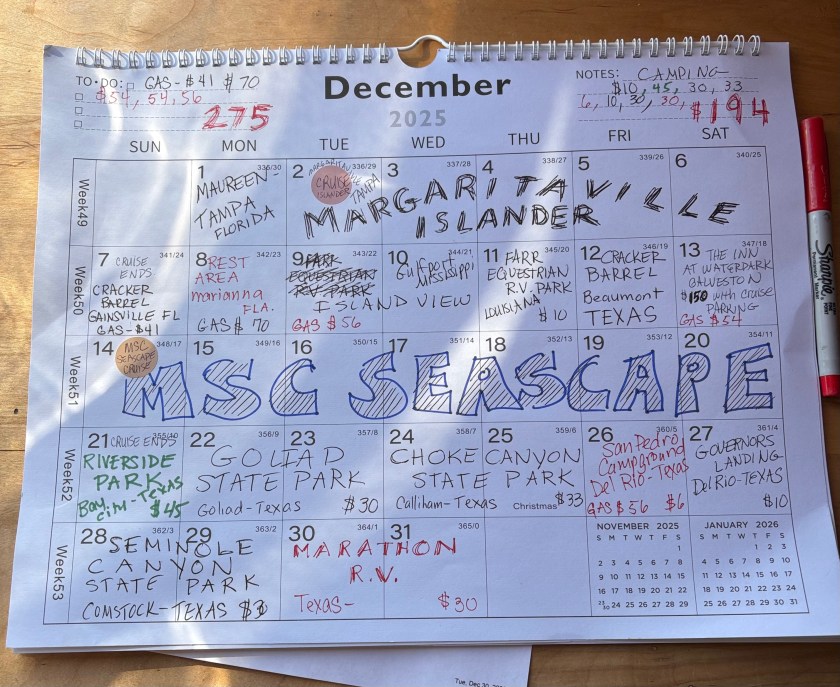 TO-DO: GAS-$41 $70
$54, 54, 56
275
December
2025
NOTES: CAMPING-
$10, 45, 30, 33
6, 10, 30, 30, $194
SUN MON TUE WED THU FRI SAT
Week49
1 336/30
MAUREEN-
TAMPA
FLORIDA
2 336/29
MARGARITAVILLE
CRUISE
ISLANDER
TAMPA
3 337/28
4 338/27
5 339/26
6 340/25
MARGARITAVILLE
ISLANDER
Week50
7 341/24
CRUISE
ENDS
CRACKER
BARREL
GAINSVILLE FL
GAS-$41
8 342/23
REST
AREA
marianna
FLA.
GAS $ 70
9 343/22
PARK
EQUESTRIAN
RV PARK
GAS $56
10 344/21
Gulfport,
Mississippi
ISLAND VIEW
11 345/20
FARR
EQUESTRIAN
R.V. PARK
LOUISIANA
$10
12 346/19
CRACKER
BARREL
Beaumont
TEXAS
13 347/18
THE INN
AT WATERPARK
GALVESTON
$150 with cruise
PARKING
GAS $54
Week51
14 348/17
MSC
SEASCAPE
CRUISE
15 349/16
16 350/15
17 351/14
18 352/13
19 353/12
20 354/11
MSC SEASCAPE
Week52
21 355/10
CRUISE ENDS
RIVERSIDE
PARK
Bay City-TEXAS
$45
22 356/9
23 357/8
GOLIAD
STATE PARK
Goliad-Texas $30
24 358/7
25 359/6
CHOKE CANYON
STATE PARK
Calliham-Texas Christmas $33
26 360/5
San Pedro
Campground
Del Rio-Texas
GAS $56 $6
27 361/4
GOVERNORS
LANDING
Del Rio-TEXAS
$10
Week53
28 362/3
29 363/2
SEMINOLE
CANYON
STATE PARK
COMSTOCK-TEXAS
30 364/1
31 365/0
MARATHON
R.V.
Texas- $30
NOVEMBER 2025
S M T W T F S
1
2 3 4 5 6 7 8
9 10 11 12 13 14 15
16 17 18 19 20 21 22
23/30 24 25 26 27 28 29
JANUARY 2026
S M T W T F S
1 2 3
4 5 6 7 8 9 10
11 12 13 14 15 16 17
18 19 20 21 22 23 24
25 26 27 28 29 30 31
Sharpie
Tue, Dec 30,